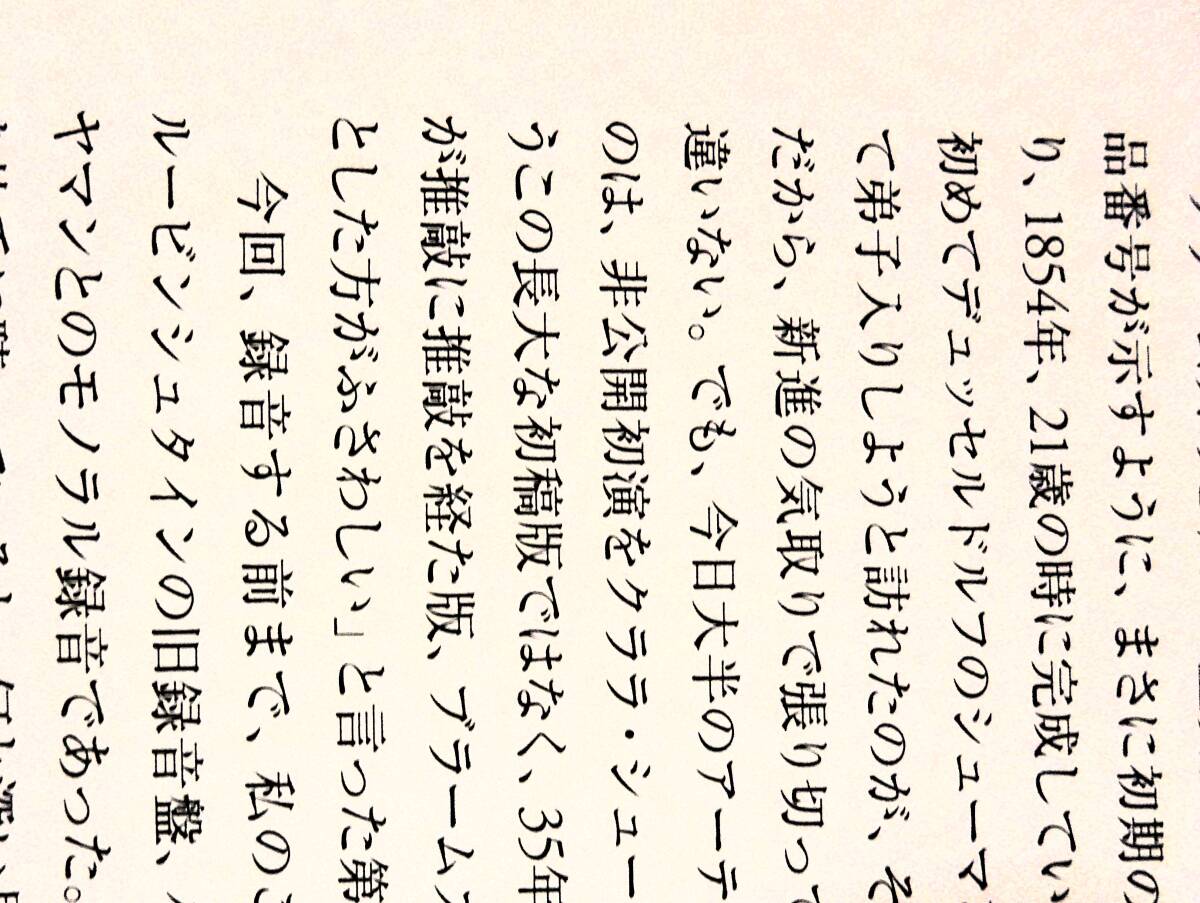 品番号が示すように、まさに初期の
り、1854年、21歳の時に完成してい
初めてデュッセルドルフのシューマ
て弟子入りしようと訪れたのが、そ
だから、新進の気取りで張り切って
違いない。でも、今日大半のアーテ
のは、非公開初演をクララ・シュー
うこの長大な初稿版ではなく、35年
が推敲に推敲を経た版、ブラームス
とした方がふさわしい」と言った第
今回、録音する前まで、私のこ
ルービンシュタインの旧録音盤、
ヤマンとのモノラル録音であった。